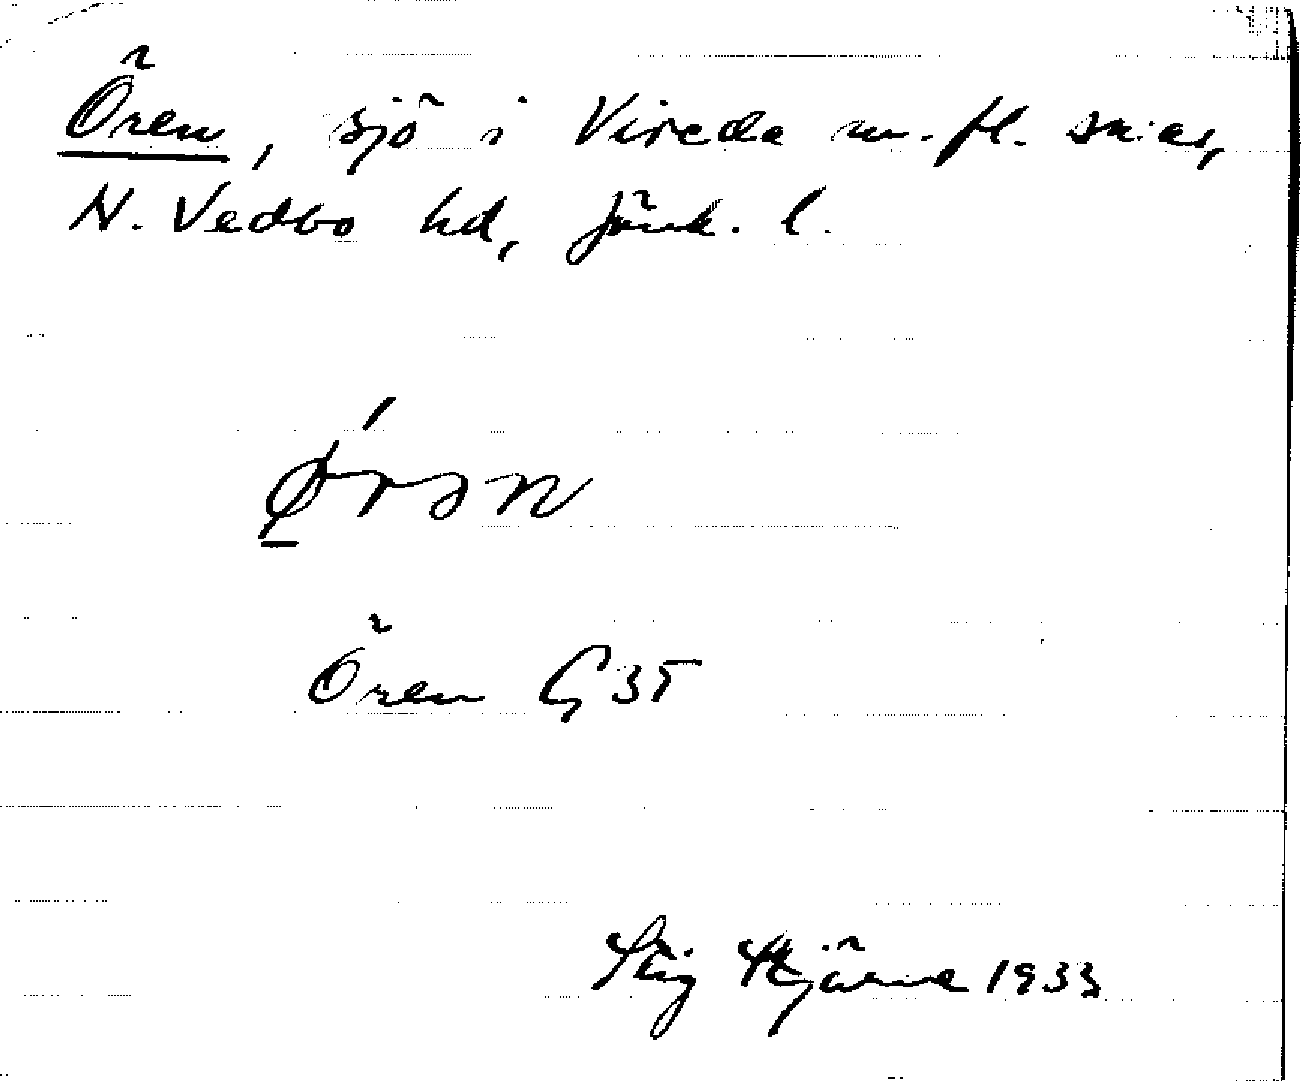 Ören, sjö i Vireda m.fl. snar,
N. Vedbo hd, Jönk. l.
ǿ̱rən
Ören G35
Stig Hjärne 1933